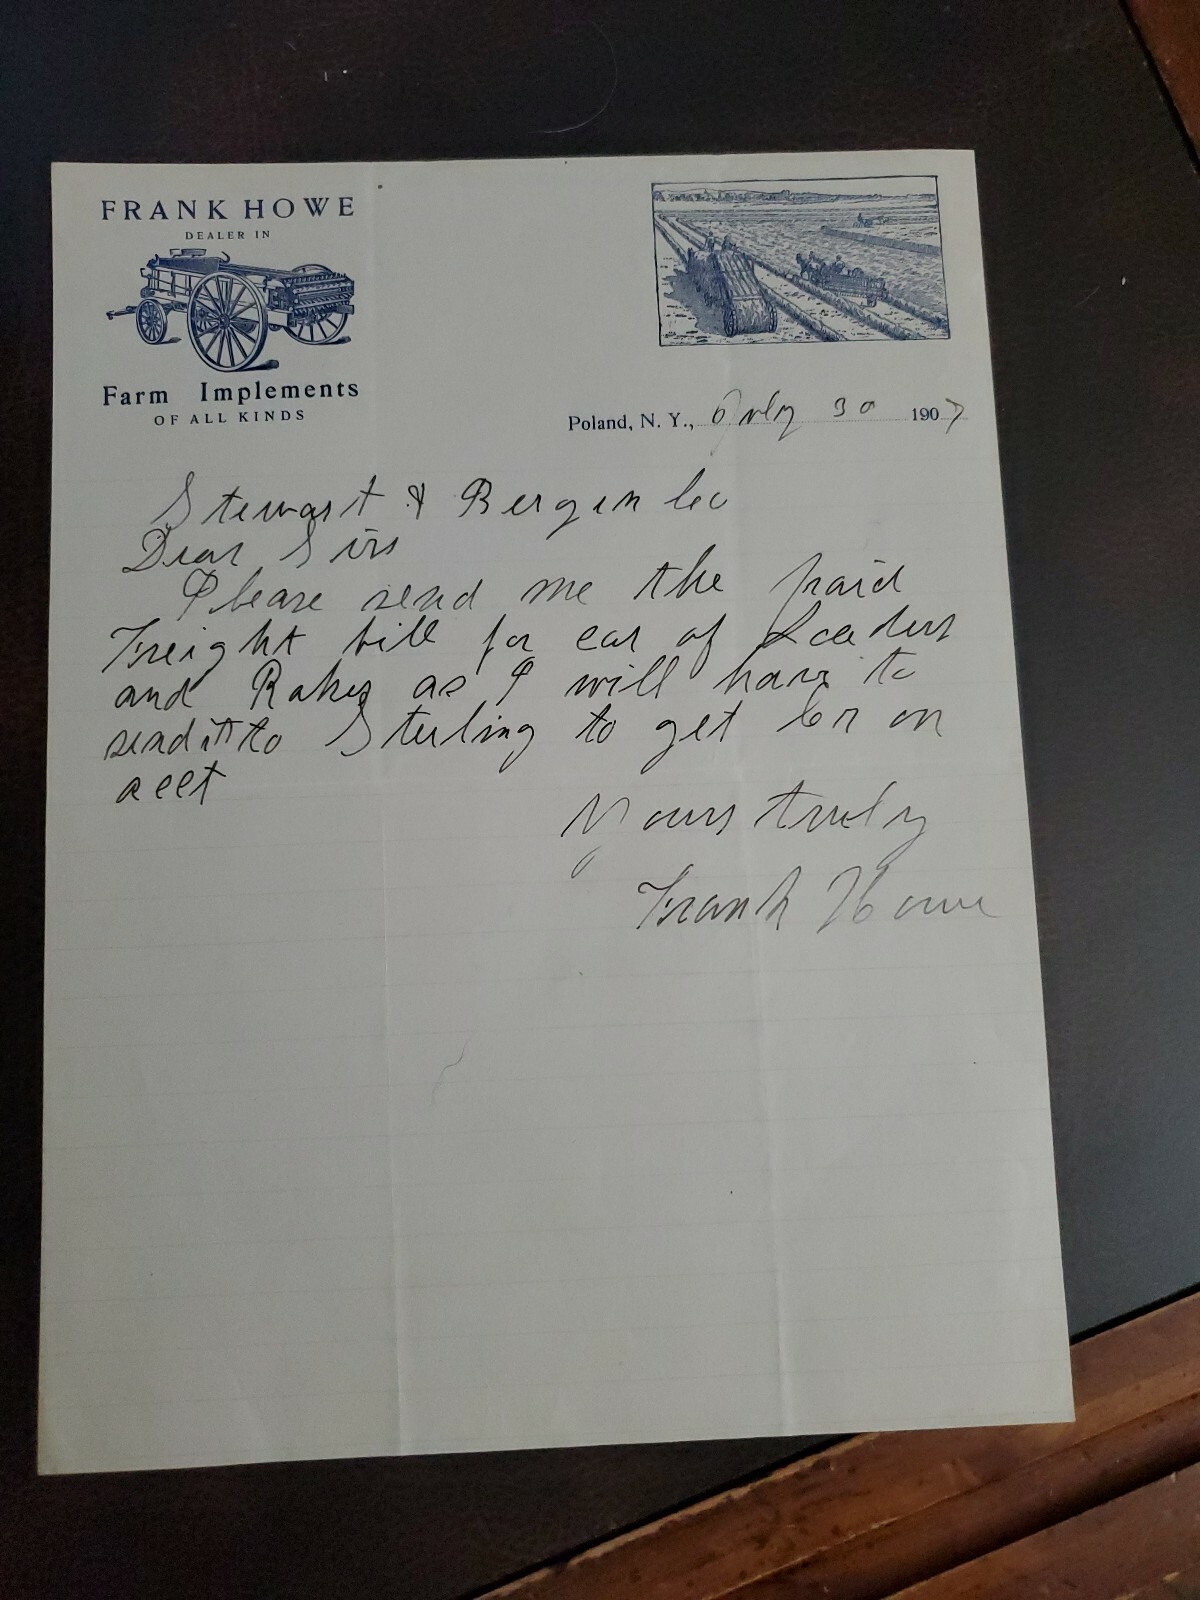 FRANK HOWE
DEALER IN
Farm Implements
OF ALL KINDS
Poland, N. Y., July 30 1907
Stewart & Bergen Co
Dear Sirs
Please send me the paid
Freight bill for car of Loaders
and Rakes as I will have to
send it to Sterling to get Cr on
acct
Yours truly
Frank Howe